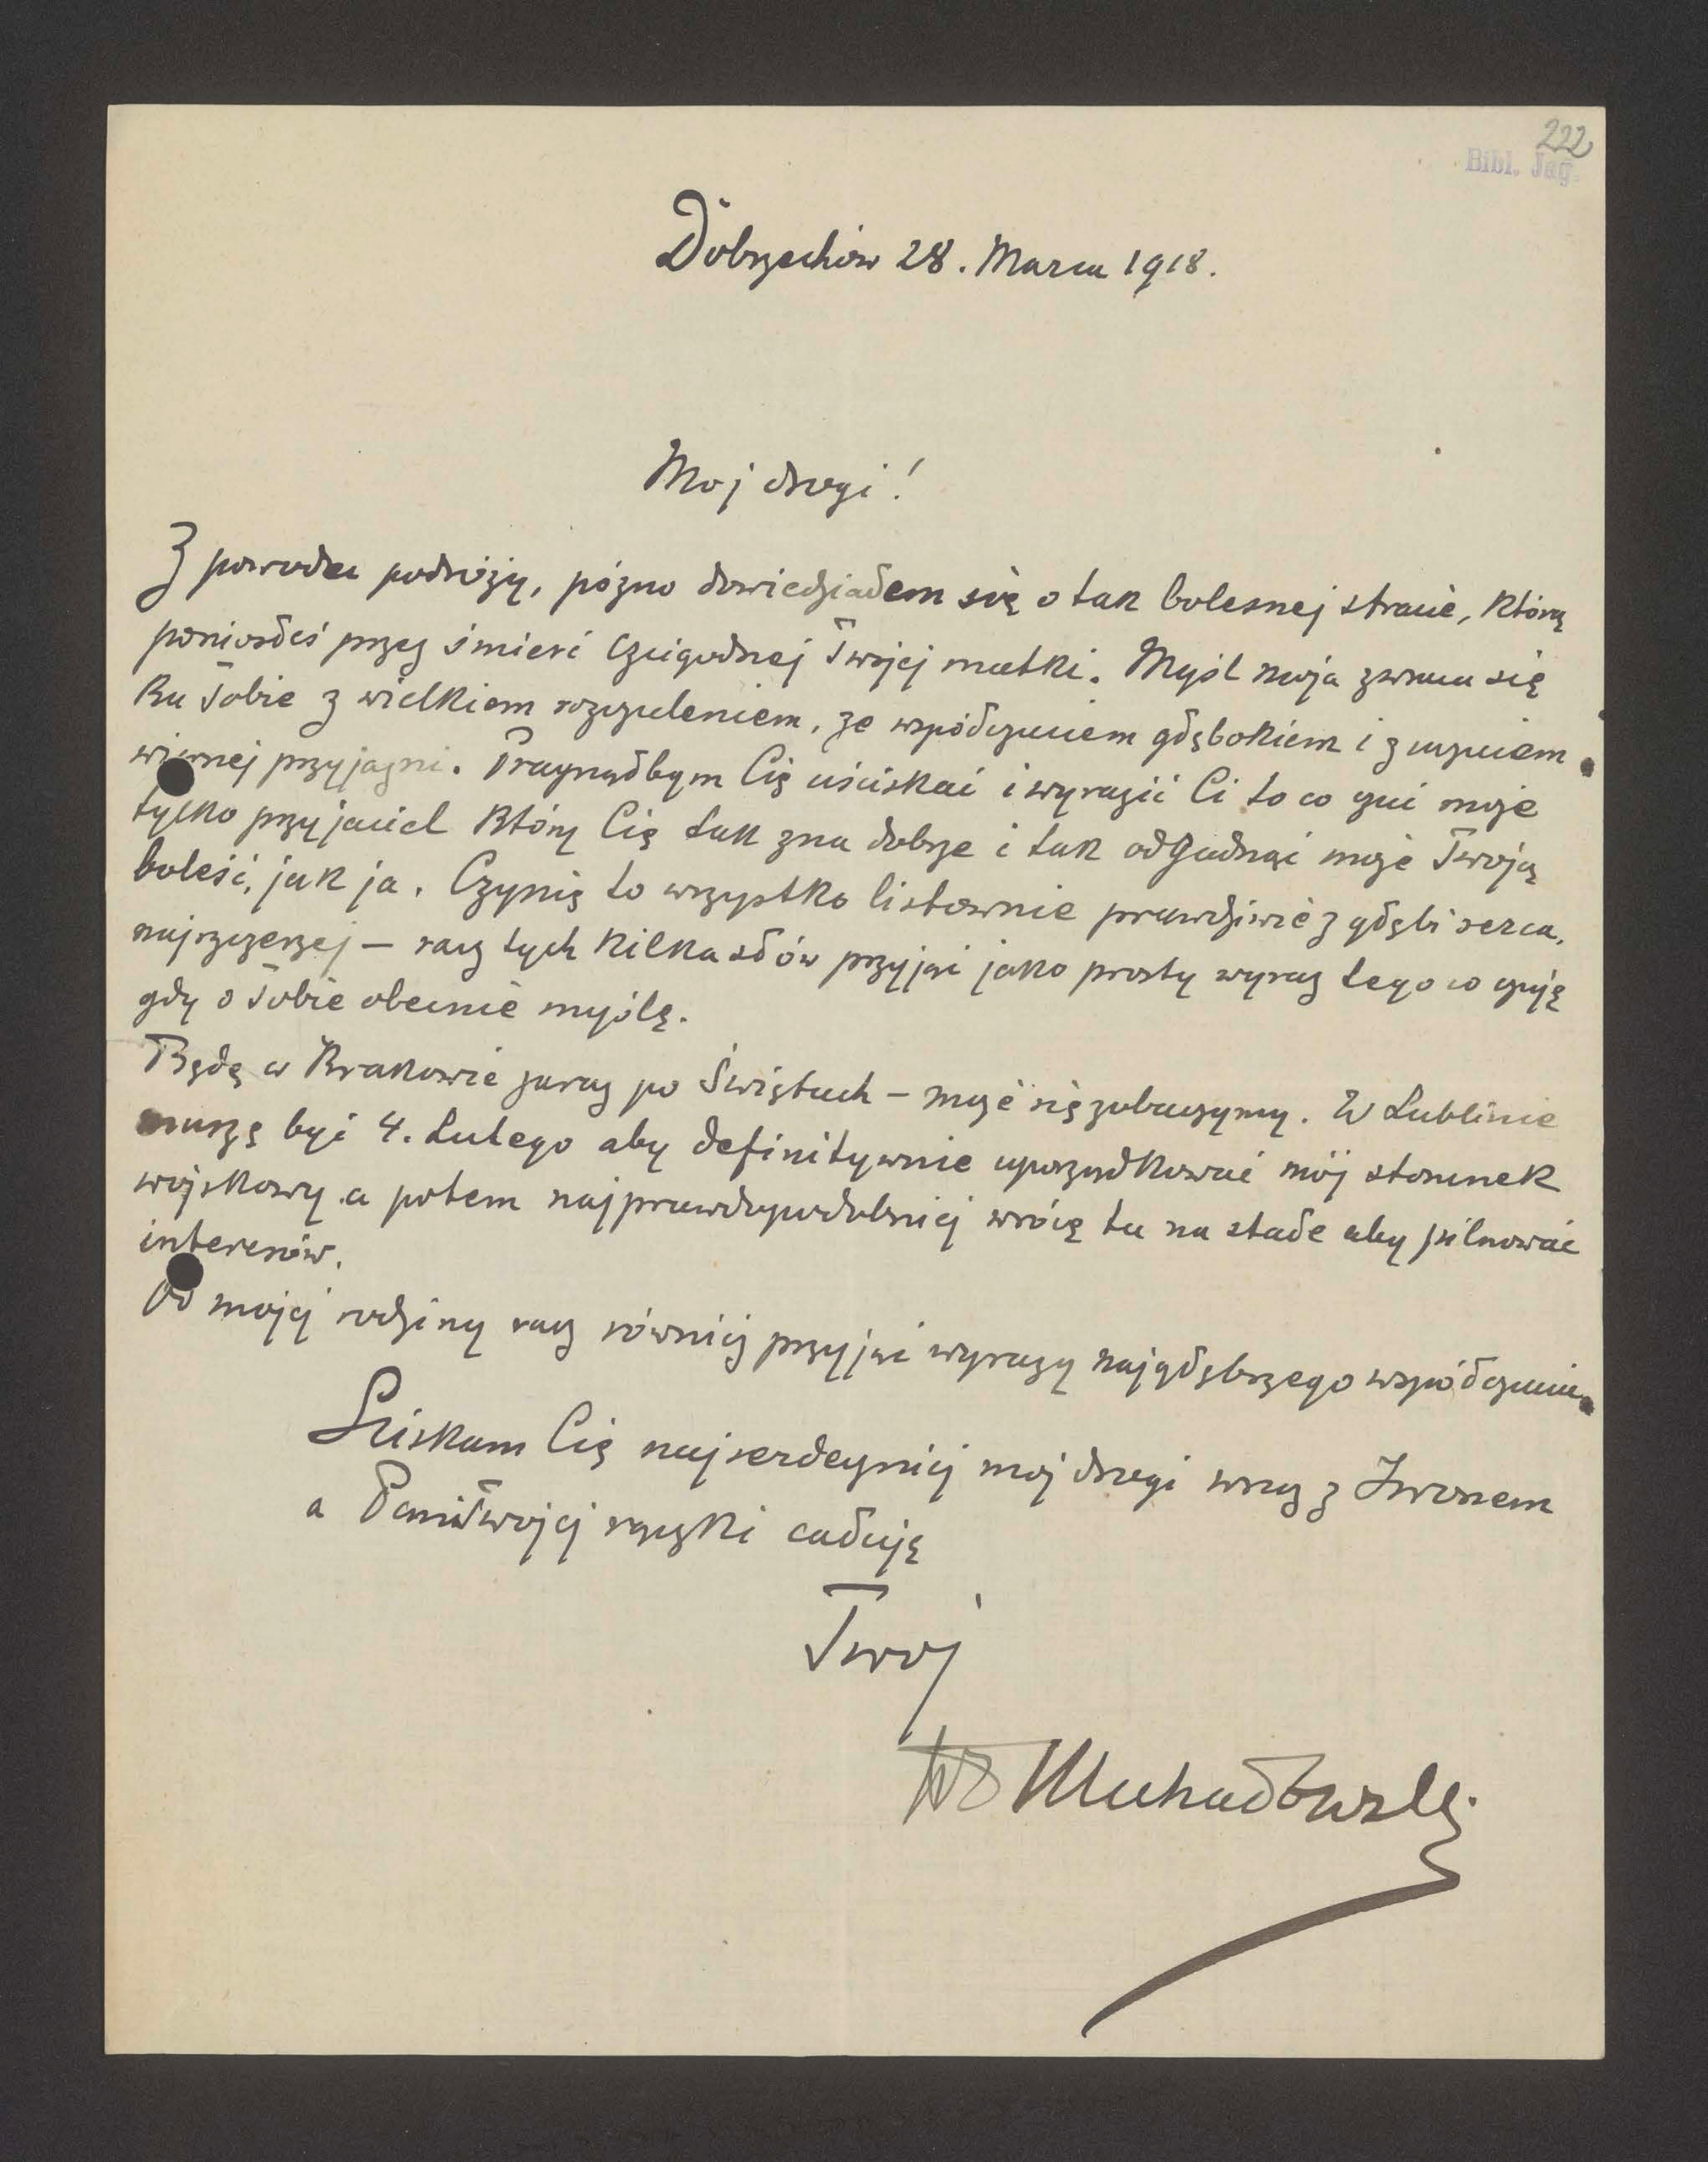 222
Bibl. Jag.
Dobrzechów 28. Marca 1918.
Moj drogi!
Z powodu podróży, pózno dowiedziałem się o tak bolesnej stracie, którą
poniosłeś przez śmierć czcigodnej Twojej matki. Myśl moja zwraca się
ku Tobie z wielkiem rozczuleniem, ze współczuciem głębokiem i z uczuciem
wiernej przyjazni. Pragnąłbym Cię uściskać i wyrazić Ci to co czuć może
tylko przyjaciel który Cię tak zna dobrze i tak odgadnąć może Twoją
boleść, jak ja. Czynię to wszystko listownie prawdziwie z głębi serca,
najszczerzej — racz tych kilka słów przyjąć jako prosty wyraz tego co czuję
gdy o Tobie obecnie myślę.
Będę w Krakowie zaraz po Świętach – może się zobaczymy. W Lublinie
muszę być 4. Lutego aby definitywnie uporządkować mój stosunek
wojskowy a potem najprawdopodobniej wrócę tu na stałe aby pilnować
interesów.
Od mojej rodziny racz równiż przyjąć wyrazy najgłębszego współczucia
Sciskam Cię najserdeczniej moj drogi wraz z Iwonem
a Pani Twojej rączki całuję
Twoj
Michałowski